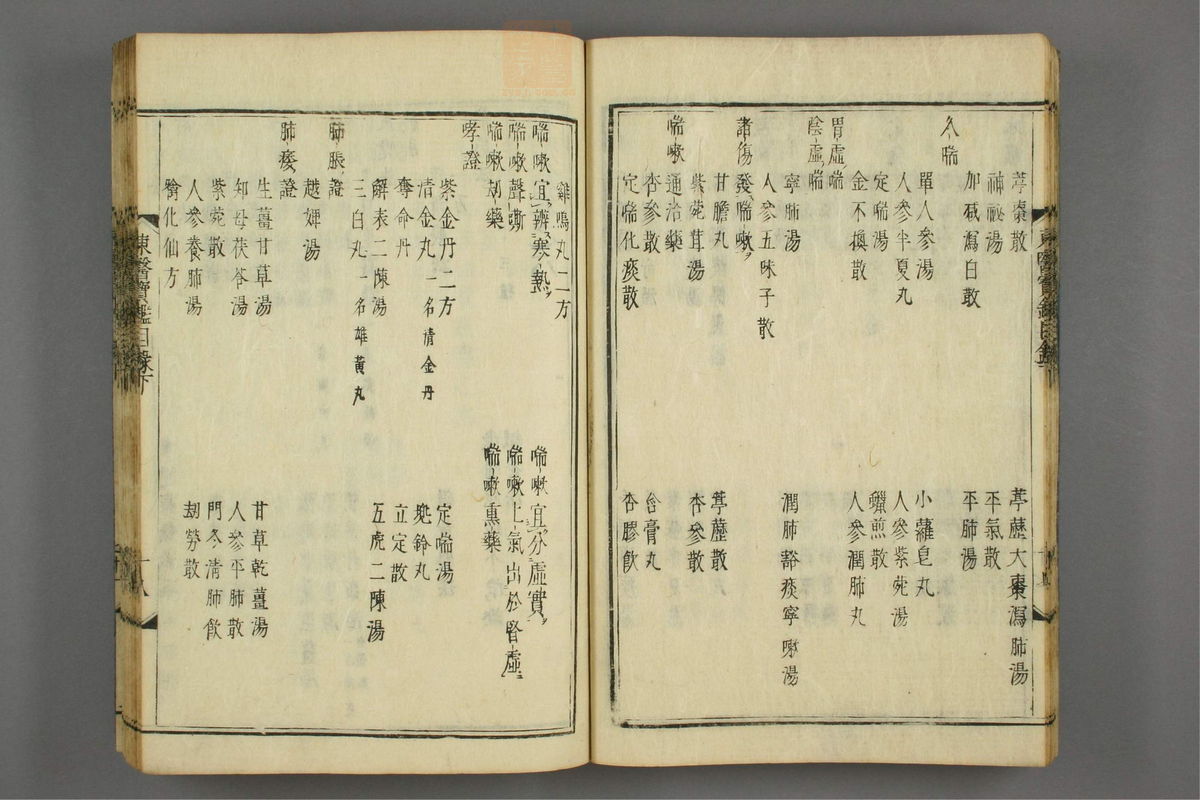 葶棗散　葶藶大棗瀉肺湯
神祕湯　平氣散
久喘　加減瀉白散　平肺湯
單人參湯　小蘿皂丸
人參半夏丸　人參紫菀湯
定喘湯　蠟煎散
金不換散　人參潤肺丸
胃虛喘
陰虛喘
寧肺湯　潤肺豁痰寧嗽湯
人參五味子散
諸傷發喘嗽
甘膽丸　葶藶散
紫菀茸湯　杏參散
喘嗽通治藥
杏參散　含膏丸
定喘化痰散　杏膠飲
雞鳴丸二方
喘嗽宜辨寒熱　喘嗽宜分虛實
喘嗽聲嘶　喘嗽上氣出於腎虛
喘嗽劫藥　喘嗽熏藥
哮證
紫金丹二方　定喘湯
清金丸 名清金丹　兜鈴丸
奪命丹　立定散
解表二陳湯　五虎二陳湯
三白丸 名雄黃丸
肺脹證
越婢湯
肺痿證
生薑甘草湯　甘草乾薑湯
知母茯苓湯　人參平肺散
紫菀散　門冬清肺飲
人參養肺湯　劫勞散
噙化仙方
東醫寶鑑目錄下　十八